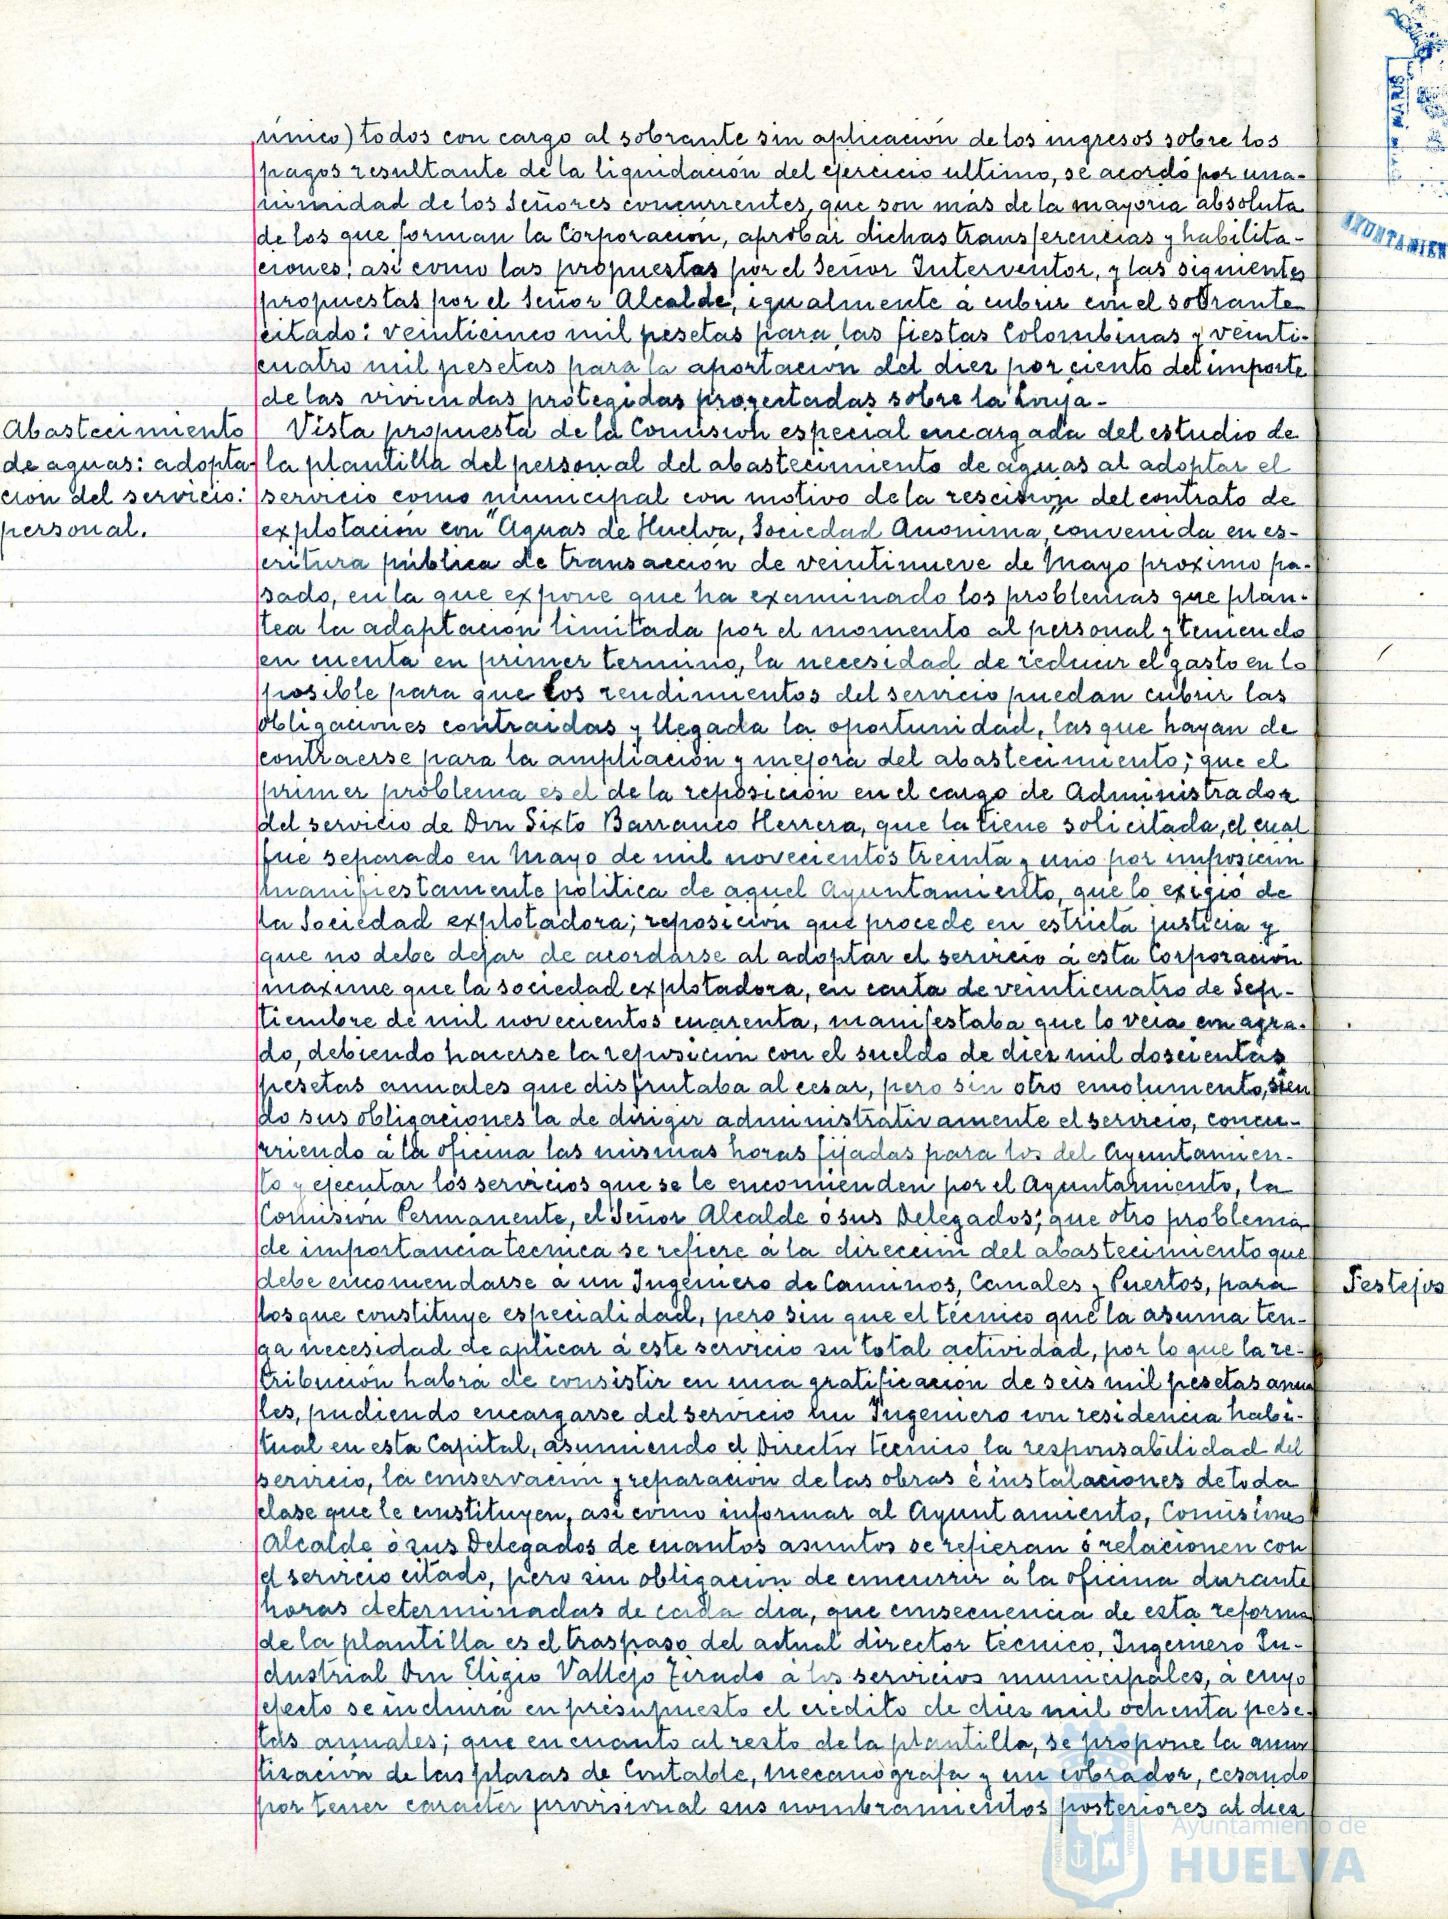 único) todos con cargo al sobrante sin aplicación de los ingresos sobre los
pagos resultante de la liquidación del ejercicio ultimo, se acordó por una-
nimidad de los Señores concurrentes, que son más de la mayoria absoluta
de los que forman la Corporación, aprobar dichas transferencias y habilita-
ciones; asi como las propuestas por el Señor Interventor, y las siguientes
propuestas por el Señor Alcalde, igualmente á cubrir con el sobrante
citado: veinticinco mil pesetas para las fiestas Colombinas y veinti-
cuatro mil pesetas para la aportación del diez por ciento del importe
de las viviendas protegidas proyectadas sobre la Lonja-
Abastecimiento
de aguas: adopta-
ción del servicio:
personal.
Vista propuesta de la Comisión especial encargada del estudio de
la plantilla del personal del abastecimiento de aguas al adoptar el
servicio como municipal con motivo de la rescisión del contrato de
explotación con "Aguas de Huelva, Sociedad Anonima", convenida en es-
critura pública de transacción de veintinueve de Mayo proximo pa-
sado, en la que expone que ha examinado los problemas que plan-
tea la adaptación limitada por el momento al personal y teniendo
en cuenta en primer termino, la necesidad de reducir el gasto en lo
posible para que los rendimientos del servicio puedan cubrir las
obligaciones contraidas y llegada la oportunidad, las que hayan de
contraerse para la ampliación y mejora del abastecimiento; que el
primer problema es el de la reposición en el cargo de Administrador
del servicio de Don Sixto Barranco Herrera, que la tiene solicitada, el cual
fué separado en Mayo de mil novecientos treinta y uno por imposición
manifiestamente politica de aquel Ayuntamiento, que lo exigió de
la Sociedad explotadora; reposición que procede en estricta justicia y
que no debe dejar de acordarse al adoptar el servicio á esta Corporación
maxime que la sociedad explotadora, en carta de veinticuatro de Sep-
tiembre de mil novecientos cuarenta, manifestaba que lo veia con agra-
do, debiendo hacerse la reposición con el sueldo de diez mil doscientas
pesetas anuales que disfrutaba al cesar, pero sin otro emolumento, sien
do sus obligaciones la de dirigir administrativamente el servicio, concu-
rriendo á la oficina las mismas horas fijadas para los del Ayuntamien-
to y ejecutar los servicios que se le encomienden por el Ayuntamiento, la
Comisión Permanente, el Señor Alcalde ó sus Delegados; que otro problema
de importancia tecnica se refiere á la dirección del abastecimiento que
debe encomendarse á un Ingeniero de Caminos, Canales y Puertos, para
los que constituye especialidad, pero sin que el técnico que la asuma ten-
ga necesidad de aplicar á este servicio su total actividad, por lo que la re-
tribución habrá de consistir en una gratificación de seis mil pesetas anua
les, pudiendo encargarse del servicio un Ingeniero con residencia habi-
tual en esta Capital, asumiendo el Director tecnico la responsabilidad del
servicio, la conservación y reparación de las obras é instalaciones de toda
clase que le constituyen, asi como informar al Ayuntamiento, Comisiones
Alcalde ó sus Delegados de cuantos asuntos se refieran ó relacionen con
el servicio citado, pero sin obligación de concurrir á la oficina durante
horas determinadas de cada dia, que consecuencia de esta reforma
de la plantilla es el traspaso del actual director técnico, Ingeniero In-
dustrial Don Eligio Vallejo Tirado á los servicios municipales, á cuyo
efecto se incluirá en presupuesto el credito de diez mil ochenta pese-
tas anuales; que en cuanto al resto de la plantilla, se propone la amor
tización de las plazas de Contable, mecanografa y un cobrador, cesando
por tener caracter provisional sus nombramientos posteriores al diez
Festejos
AYUNTAMIEN
Ayuntamiento de
HUELVA